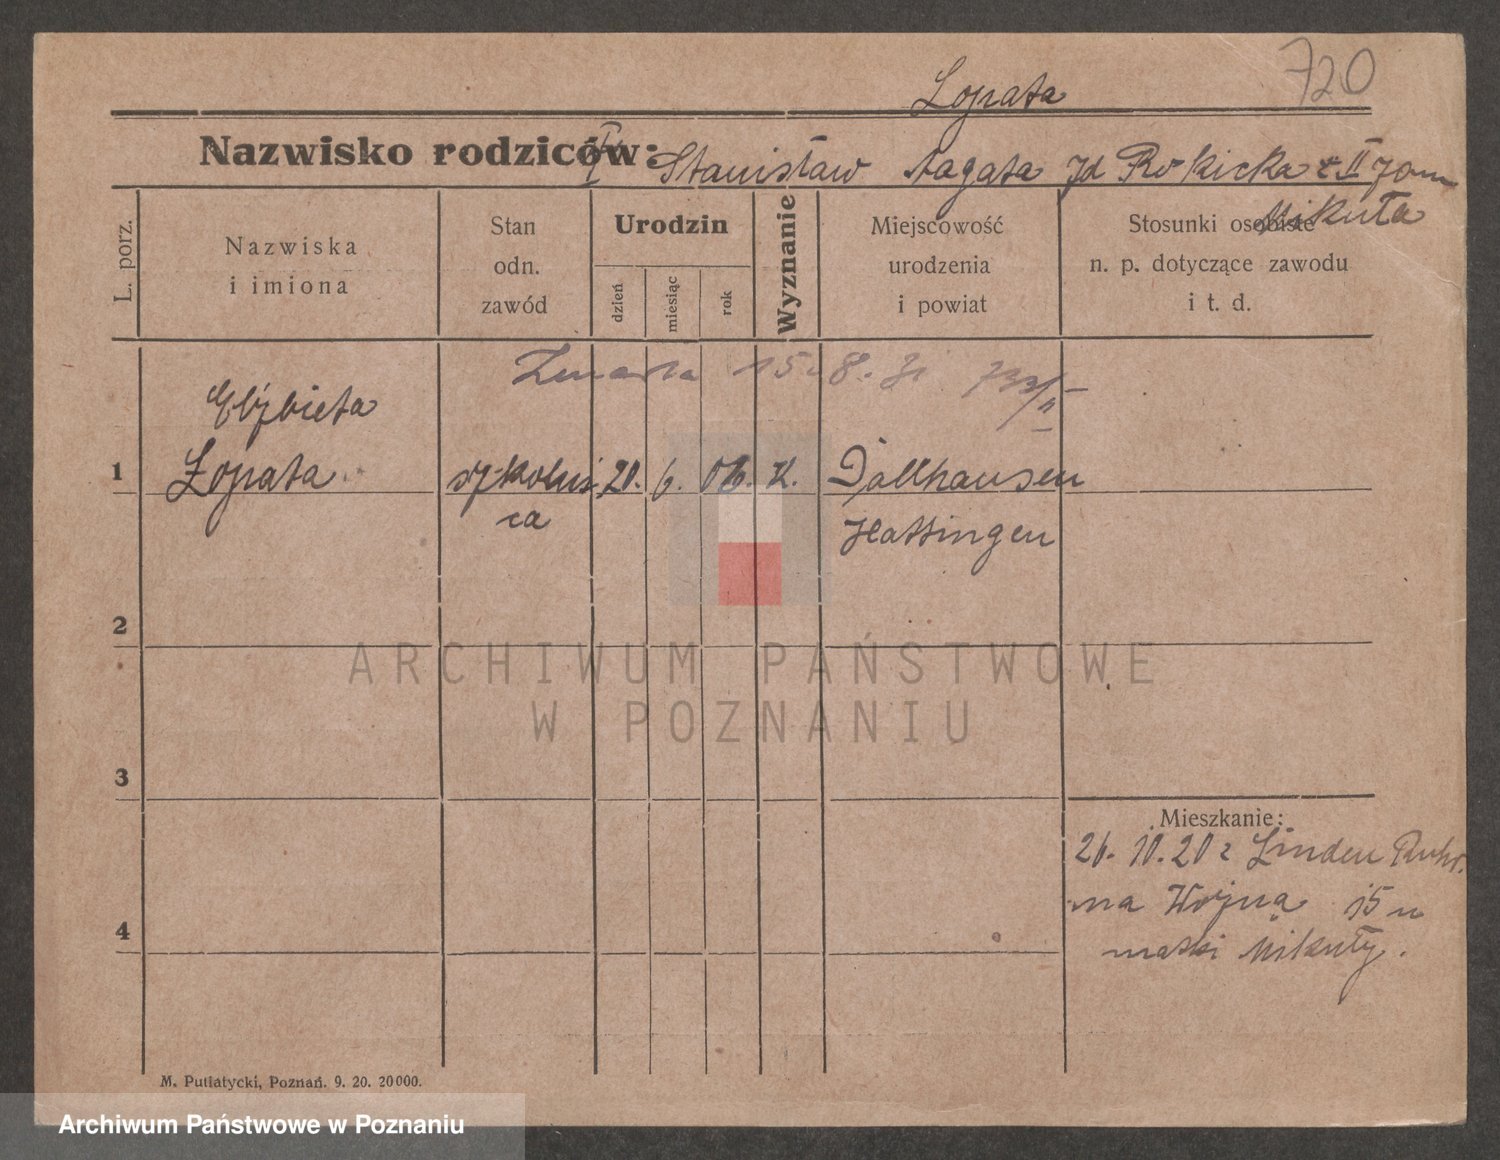 720
Łopata
Nazwisko rodziców: Stanisław Agata Rokicka II Jan
Mikuła
L. porz.
Nazwiska
i imiona
Stan
odn.
zawód
Urodzin
dzień
miesiąc
rok
Wyznanie
Miejscowość
urodzenia
i powiat
Stosunki osobiste
n. p. dotyczące zawodu
i t. d.
Zmarła 15. 8. 21
Elżbieta
1 Łopata szkolni 20. 6. 06. K. Dallhausen
ca Hattingen
2
3
4
Mieszkanie:
26. 10. 20 z Linden Ruhr.
na Wojną 15 u
matki Mikuły.
M. Putiatycki, Poznań. 9. 20. 20000.
ARCHIWUM PAŃSTWOWE
W POZNANIU
Archiwum Państwowe w Poznaniu